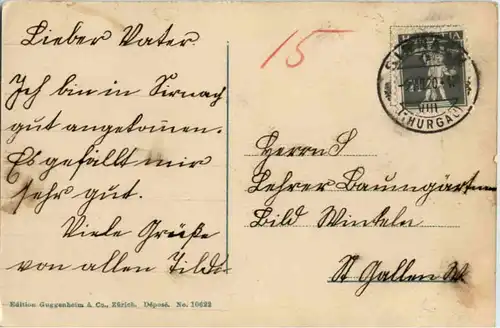 Lieber Vater.
Ich bin in Sirnach
gut angekomen.
Es gefällt mir
sehr gut.
Viele Grüße
von allen
Edition Guggenheim & Co., Zürich. Déposé. No. 10622
15
HELVETIA
SIRNACH
(THURGAU)
VIII
Herrn
Lehrer Baumgartner
Bild Winkeln
St Gallen W.